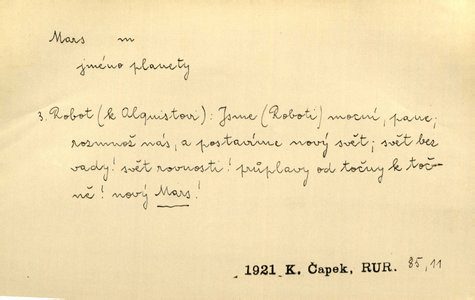 Mars m
jméno planety
3. Robot (k Alquistovi): Jsme (Roboti) mocní, pane;
rozmnož nás, a postavíme nový svět; svět bez
vady! svět rovnosti! průplavy od točny k toč-
ně! nový Mars!
1921 K. Čapek, RUR. 85,11